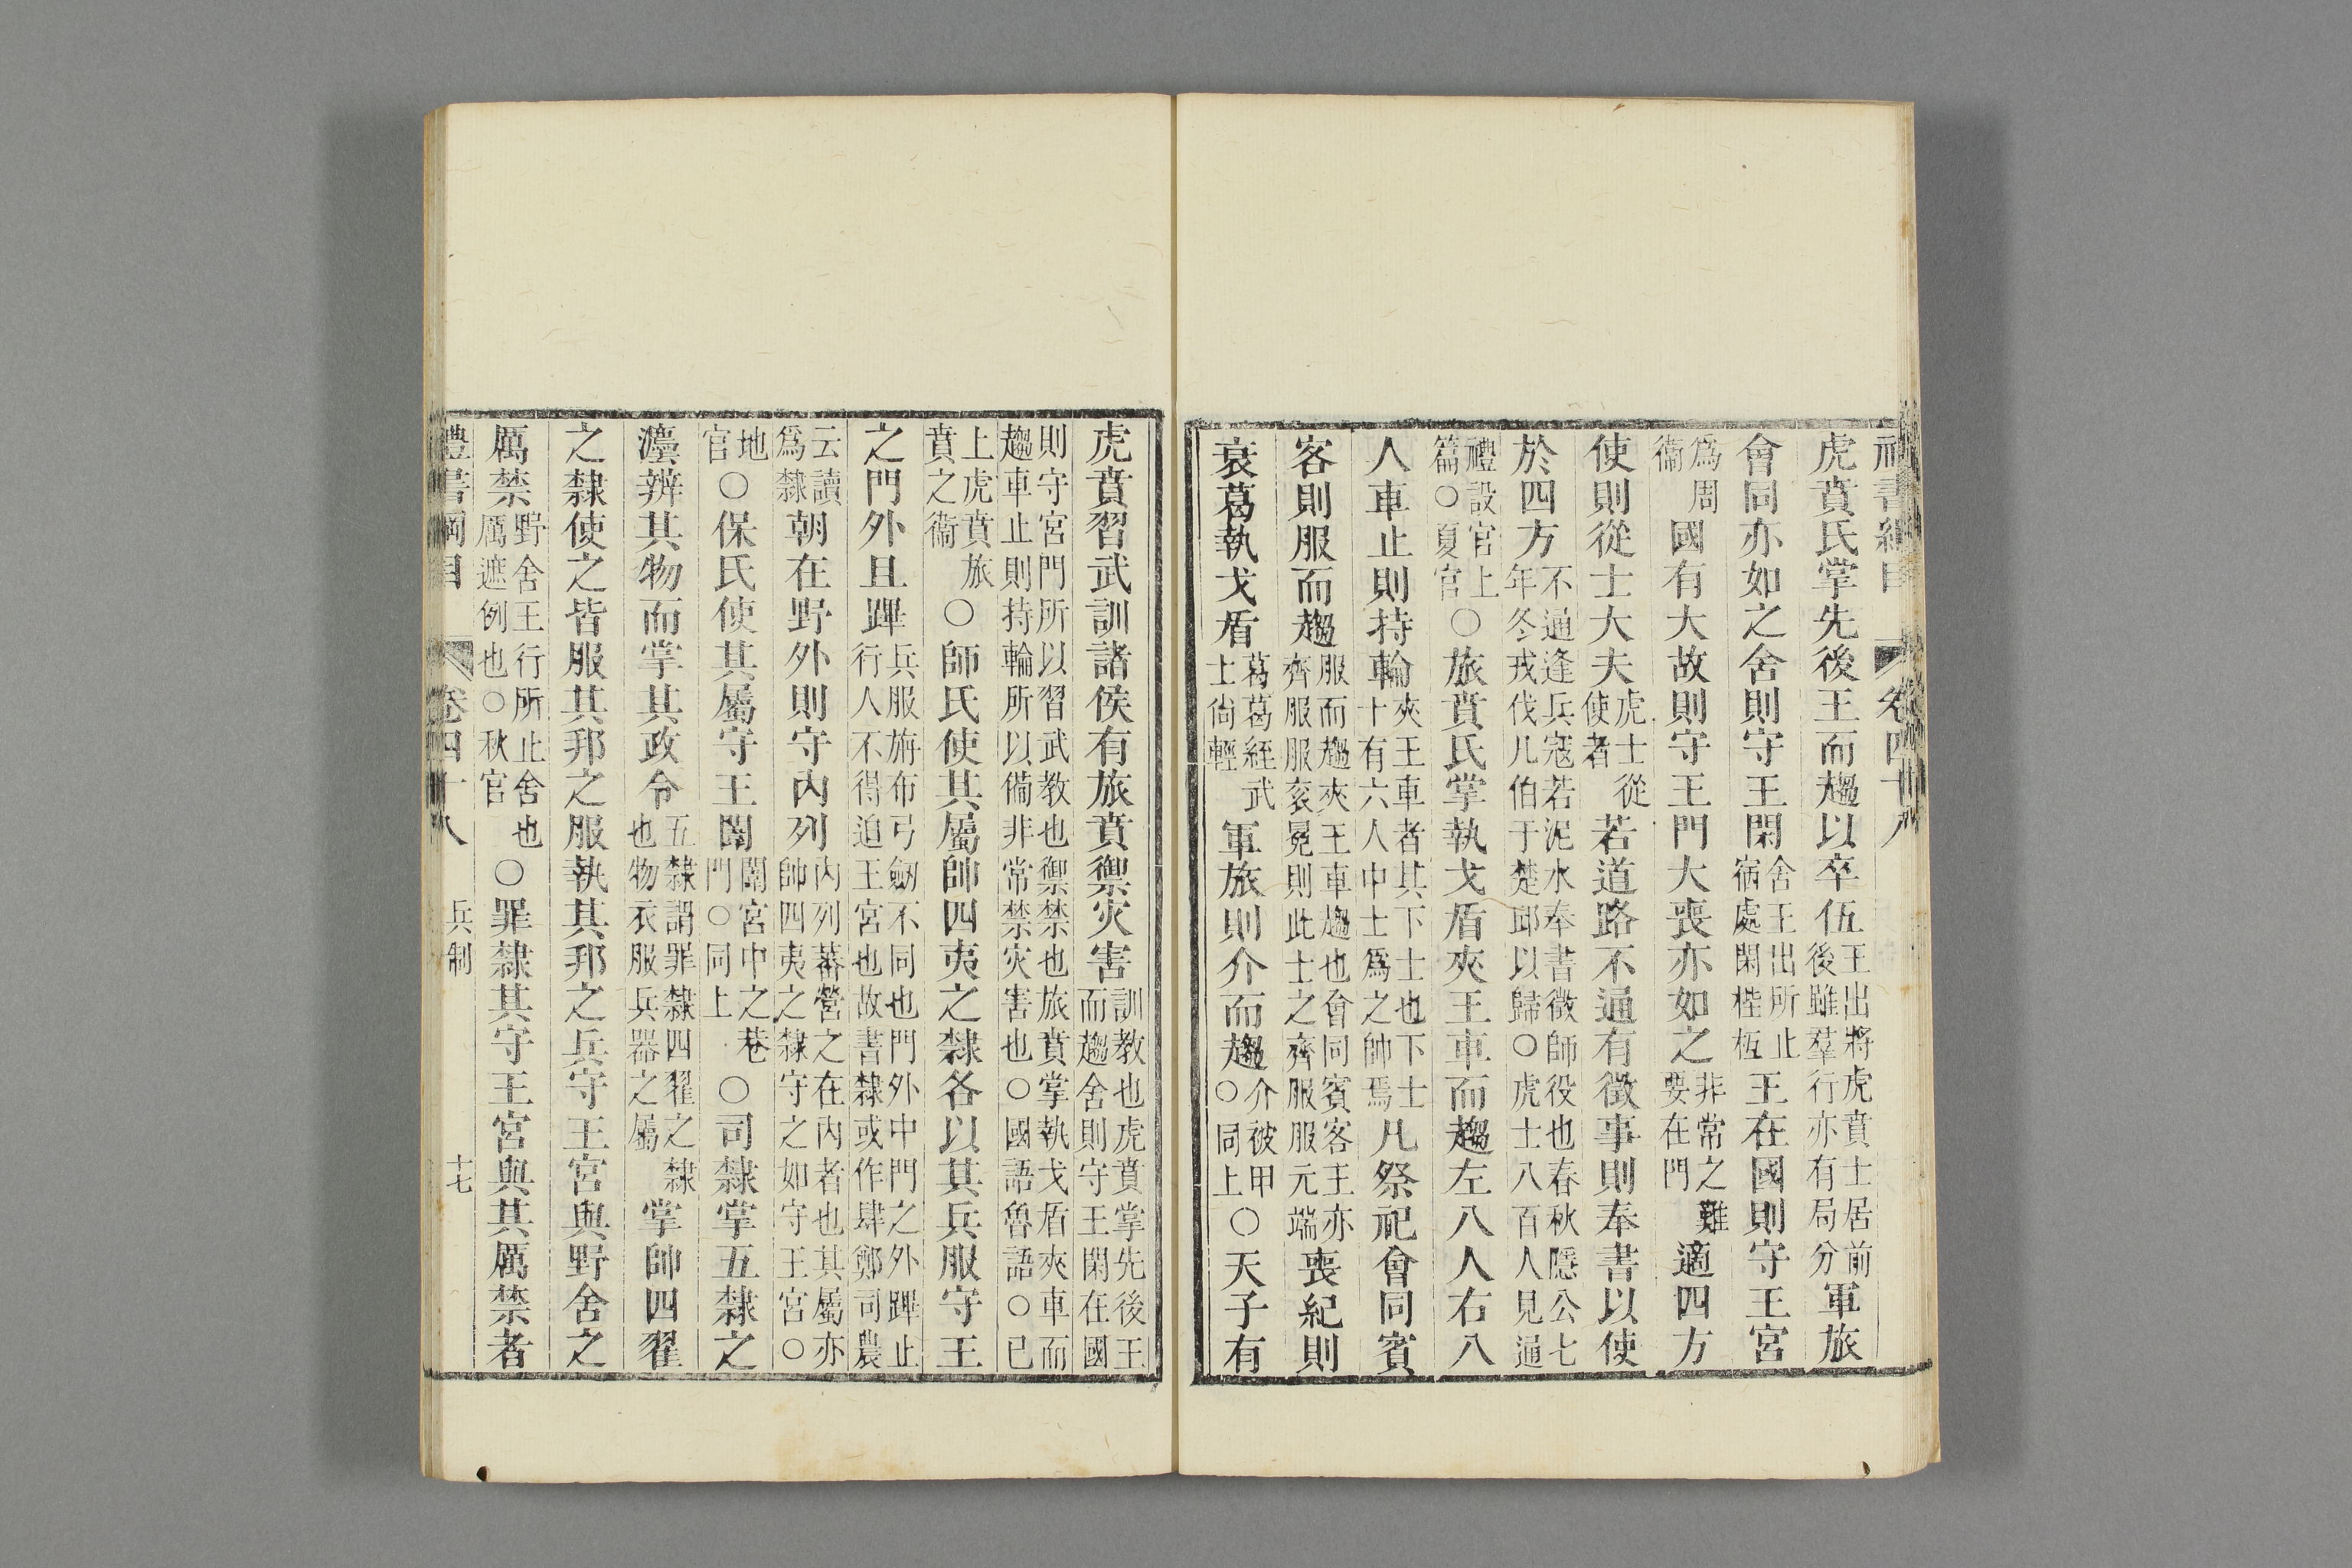 禮書綱目 卷四十八
虎賁氏掌先後王而趨以卒伍王出將虎賁士居前後雖羣行亦有局分軍旅
會同亦如之舍則守王閑舍王出所止宿處閑梐枑王在國則守王宮
爲周衞國有大故則守王門大喪亦如之非常之難要在門適四方
使則從士大夫虎士從使者若道路不通有徵事則奉書以使
於四方不通逢兵寇若泥水奉書徵師役也春秋隱公七年冬戎伐凡伯于楚邱以歸○虎士八百人見通
禮設官上篇○夏官○旅賁氏掌執戈盾夾王車而趨左八人右八
人車止則持輪夾王車者其下士也下士十有六人中士爲之帥焉凡祭祀會同賓
客則服而趨服而趨夾王車趨也會同賓客王亦齊服服袞冕則此士之齊服服元端喪紀則
衰葛執戈盾葛葛絰武士尙輕軍旅則介而趨介被甲○同上○天子有
虎賁習武訓諸侯有旅賁禦灾害訓教也虎賁掌先後王而趨舍則守王閑在國
則守宮門所以習武教也禦禁也旅賁掌執戈盾夾車而趨車止則持輪所以備非常禁灾害也○國語魯語○已
上虎賁旅賁之衞○師氏使其屬帥四夷之隸各以其兵服守王
之門外且蹕兵服旃布弓劒不同也門外中門之外蹕止行人不得迫王宮也故書隸或作肆鄭司農
云讀爲隸朝在野外則守內列內列蕃營之在內者也其屬亦帥四夷之隸守之如守王宮○
地官○保氏使其屬守王闈闈宮中之巷門○同上○司隸掌五隸之
灋辨其物而掌其政令五隸謂罪隸四翟之隸也物衣服兵器之屬掌帥四翟
之隸使之皆服其邦之服執其邦之兵守王宮與野舍之
厲禁野舍王行所止舍也厲遮例也○秋官○罪隸其守王宮與其厲禁者
禮書綱目 卷四十八 兵制 十七